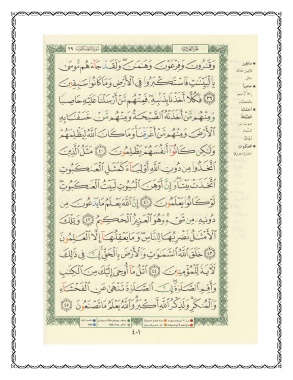 وَقَٰرُونَ وَفِرْعَوْنَ وَهَٰمَٰنَ وَلَقَدْ جَآءَهُم مُّوسَىٰ
بِٱلْبَيِّنَٰتِ فَٱسْتَكْبَرُوا۟ فِى ٱلْأَرْضِ وَمَا كَانُوا۟ سَٰبِقِينَ
٣٩ فَكُلًّا أَخَذْنَا بِذَنۢبِهِۦ فَمِنْهُم مَّنْ أَرْسَلْنَا عَلَيْهِ حَاصِبًا
وَمِنْهُم مَّنْ أَخَذَتْهُ ٱلصَّيْحَةُ وَمِنْهُم مَّنْ خَسَفْنَا بِهِ
ٱلْأَرْضَ وَمِنْهُم مَّنْ أَغْرَقْنَا وَمَا كَانَ ٱللَّهُ لِيَظْلِمَهُمْ
وَلَٰكِن كَانُوٓا۟ أَنفُسَهُمْ يَظْلِمُونَ ٤٠ مَثَلُ ٱلَّذِينَ
ٱتَّخَذُوا۟ مِن دُونِ ٱللَّهِ أَوْلِيَآءَ كَمَثَلِ ٱلْعَنكَبُوتِ
ٱتَّخَذَتْ بَيْتًا وَإِنَّ أَوْهَنَ ٱلْبُيُوتِ لَبَيْتُ ٱلْعَنكَبُوتِ
لَوْ كَانُوا۟ يَعْلَمُونَ ٤١ إِنَّ ٱللَّهَ يَعْلَمُ مَا يَدْعُونَ مِن
دُونِهِۦ مِن شَىْءٍ وَهُوَ ٱلْعَزِيزُ ٱلْحَكِيمُ ٤٢ وَتِلْكَ
ٱلْأَمْثَٰلُ نَضْرِبُهَا لِلنَّاسِ وَمَا يَعْقِلُهَآ إِلَّا ٱلْعَٰلِمُونَ
٤٣ خَلَقَ ٱللَّهُ ٱلسَّمَٰوَٰتِ وَٱلْأَرْضَ بِٱلْحَقِّ إِنَّ فِى ذَٰلِكَ
لَءَايَةً لِّلْمُؤْمِنِينَ ٤٤ ٱتْلُ مَآ أُوحِىَ إِلَيْكَ مِنَ ٱلْكِتَٰبِ
وَأَقِمِ ٱلصَّلَوٰةَ إِنَّ ٱلصَّلَوٰةَ تَنْهَىٰ عَنِ ٱلْفَحْشَآءِ
وَٱلْمُنكَرِ وَلَذِكْرُ ٱللَّهِ أَكْبَرُ وَٱللَّهُ يَعْلَمُ مَا تَصْنَعُونَ ٤٥
٤٠١